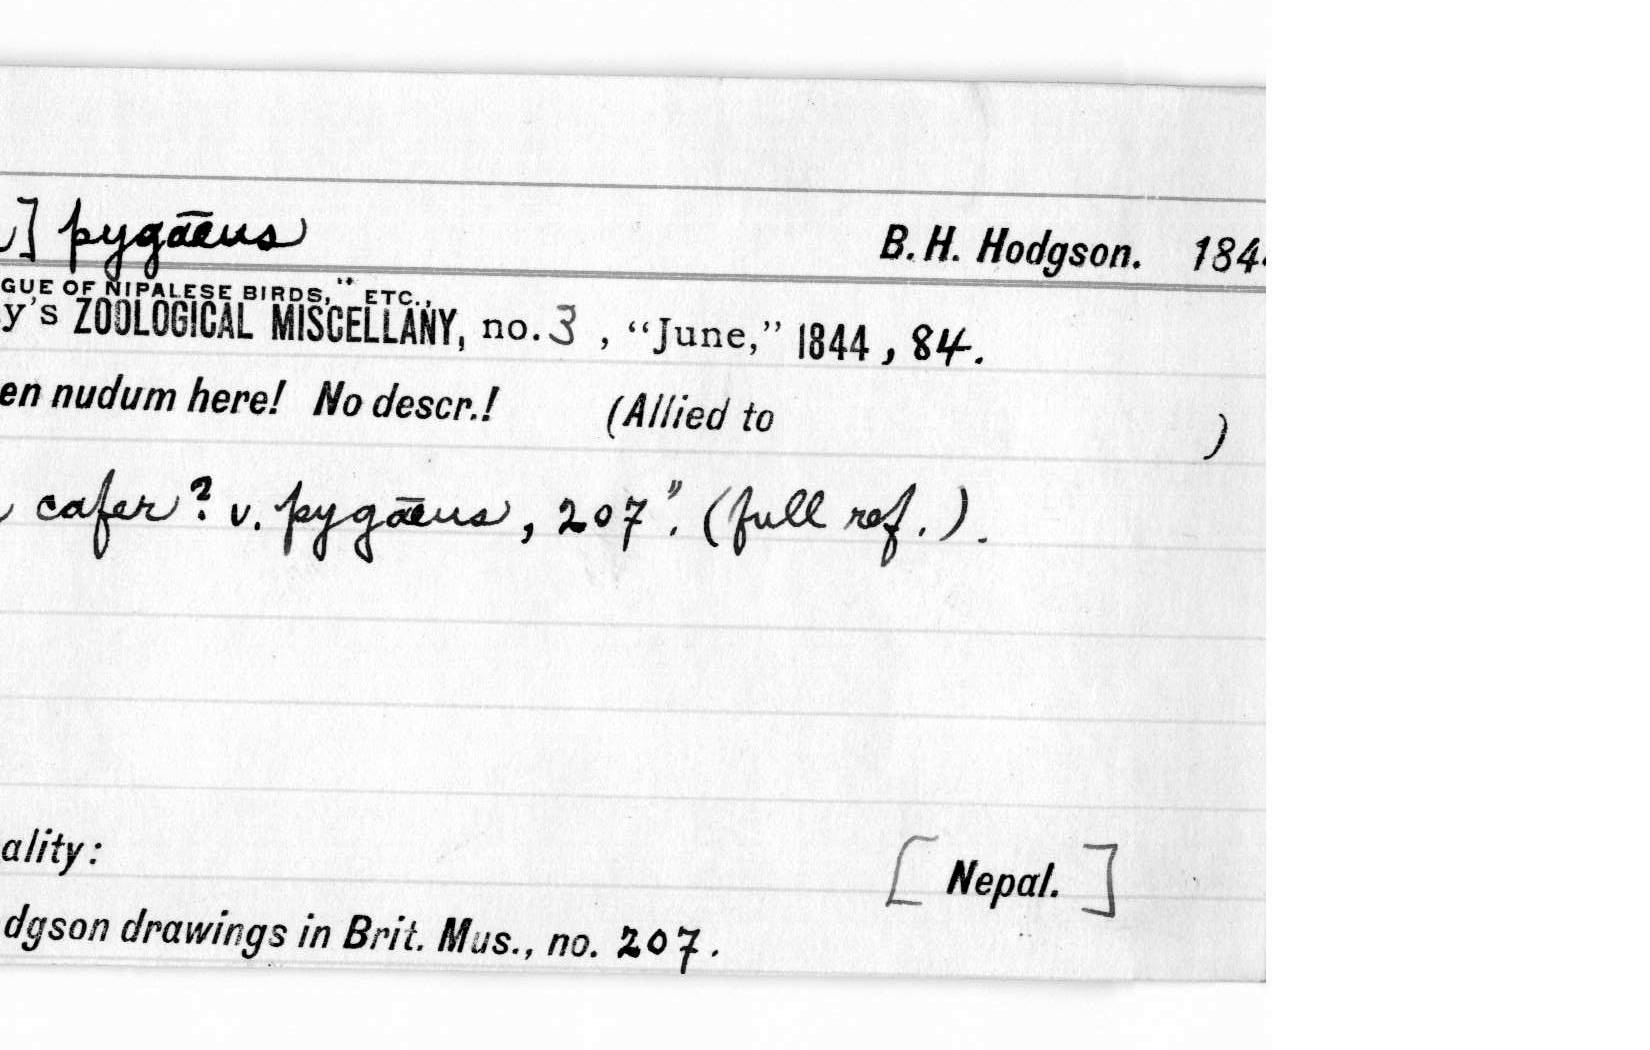 ] pygāeus B. H. Hodgson. 184
GUE OF NIPALESE BIRDS," ETC.,
y's ZOOLOGICAL MISCELLANY, no. 3 , "June," 1844 , 84.
en nudum here! No descr.! (Allied to )
cafer? v. pygāeus, 207". (full ref.).
ality: [Nepal.]
dgson drawings in Brit. Mus., no. 207.